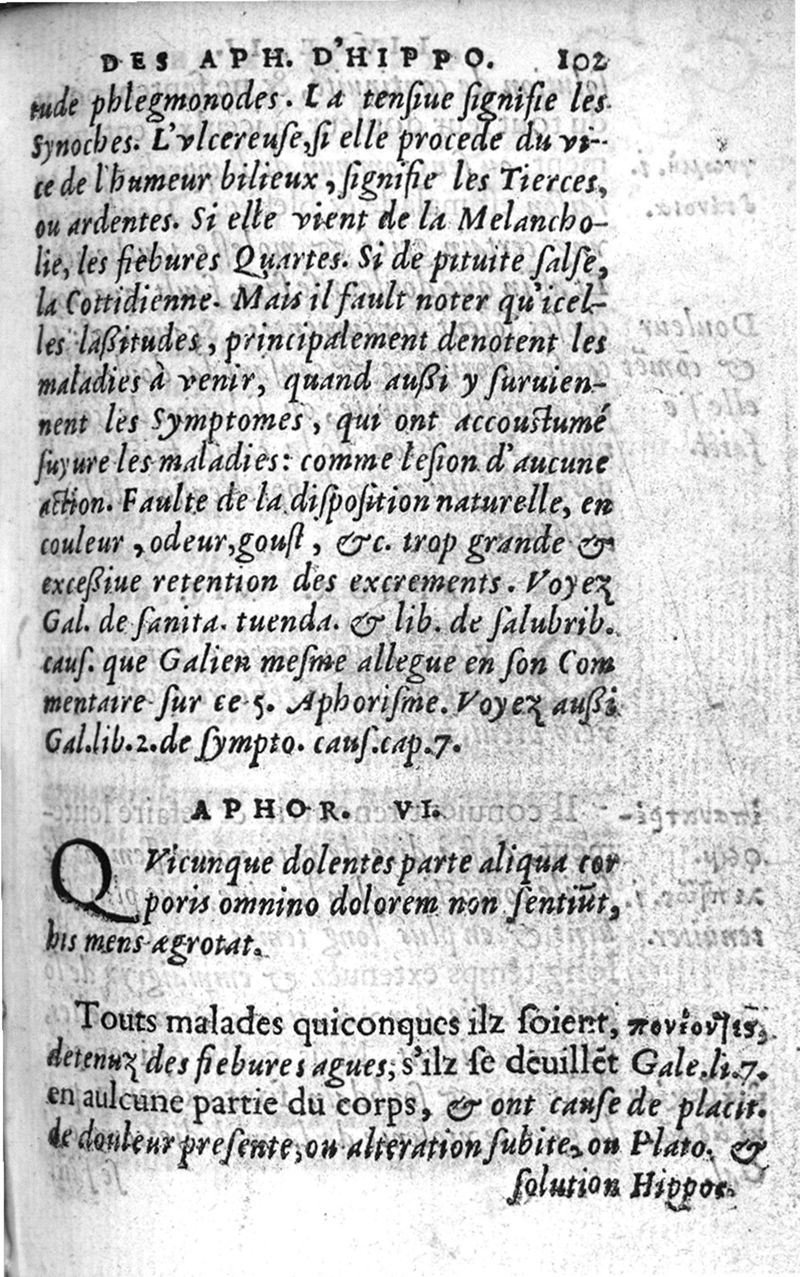 DES APH. D'HIPPO. 102
tude phlegmonodes. La tensiue signifie les
Synoches. L'vlcereuse, si elle procede du vi-
ce de l'humeur bilieux, signifie les Tierces,
ou ardentes. Si elle vient de la Melancho-
lie, les fiebures Quartes. Si de pituite salse,
la Cottidienne. Mais il fault noter qu'icel-
les laßitudes, principalement denotent les
maladies à venir, quand außi y suruien-
nent les Symptomes, qui ont accoustumé
suyure les maladies: comme lesion d'aucune
action. Faulte de la disposition naturelle, en
couleur, odeur, goust, &c. trop grande &
exceßiue retention des excrements. Voyez
Gal. de sanita. tuenda. & lib. de salubrib.
caus. que Galien mesme allegue en son Com
mentaire sur ce 5. Aphorisme. Voyez außi
Gal. lib. 2. de sympto. caus. cap. 7.
APHOR. VI.
QVicunque dolentes parte aliqua cor
poris omnino dolorem non sentiũt,
his mens ægrotat.
Touts malades quiconques ilz soient,
detenuz des fiebures agues, s'ilz se deuillẽt
en aulcune partie du corps, & ont cause
de douleur presente, ou alteration subite, ou
solution
πονέοντες,
Gale. li. 7.
de placit.
Plato. &
Hippoc.